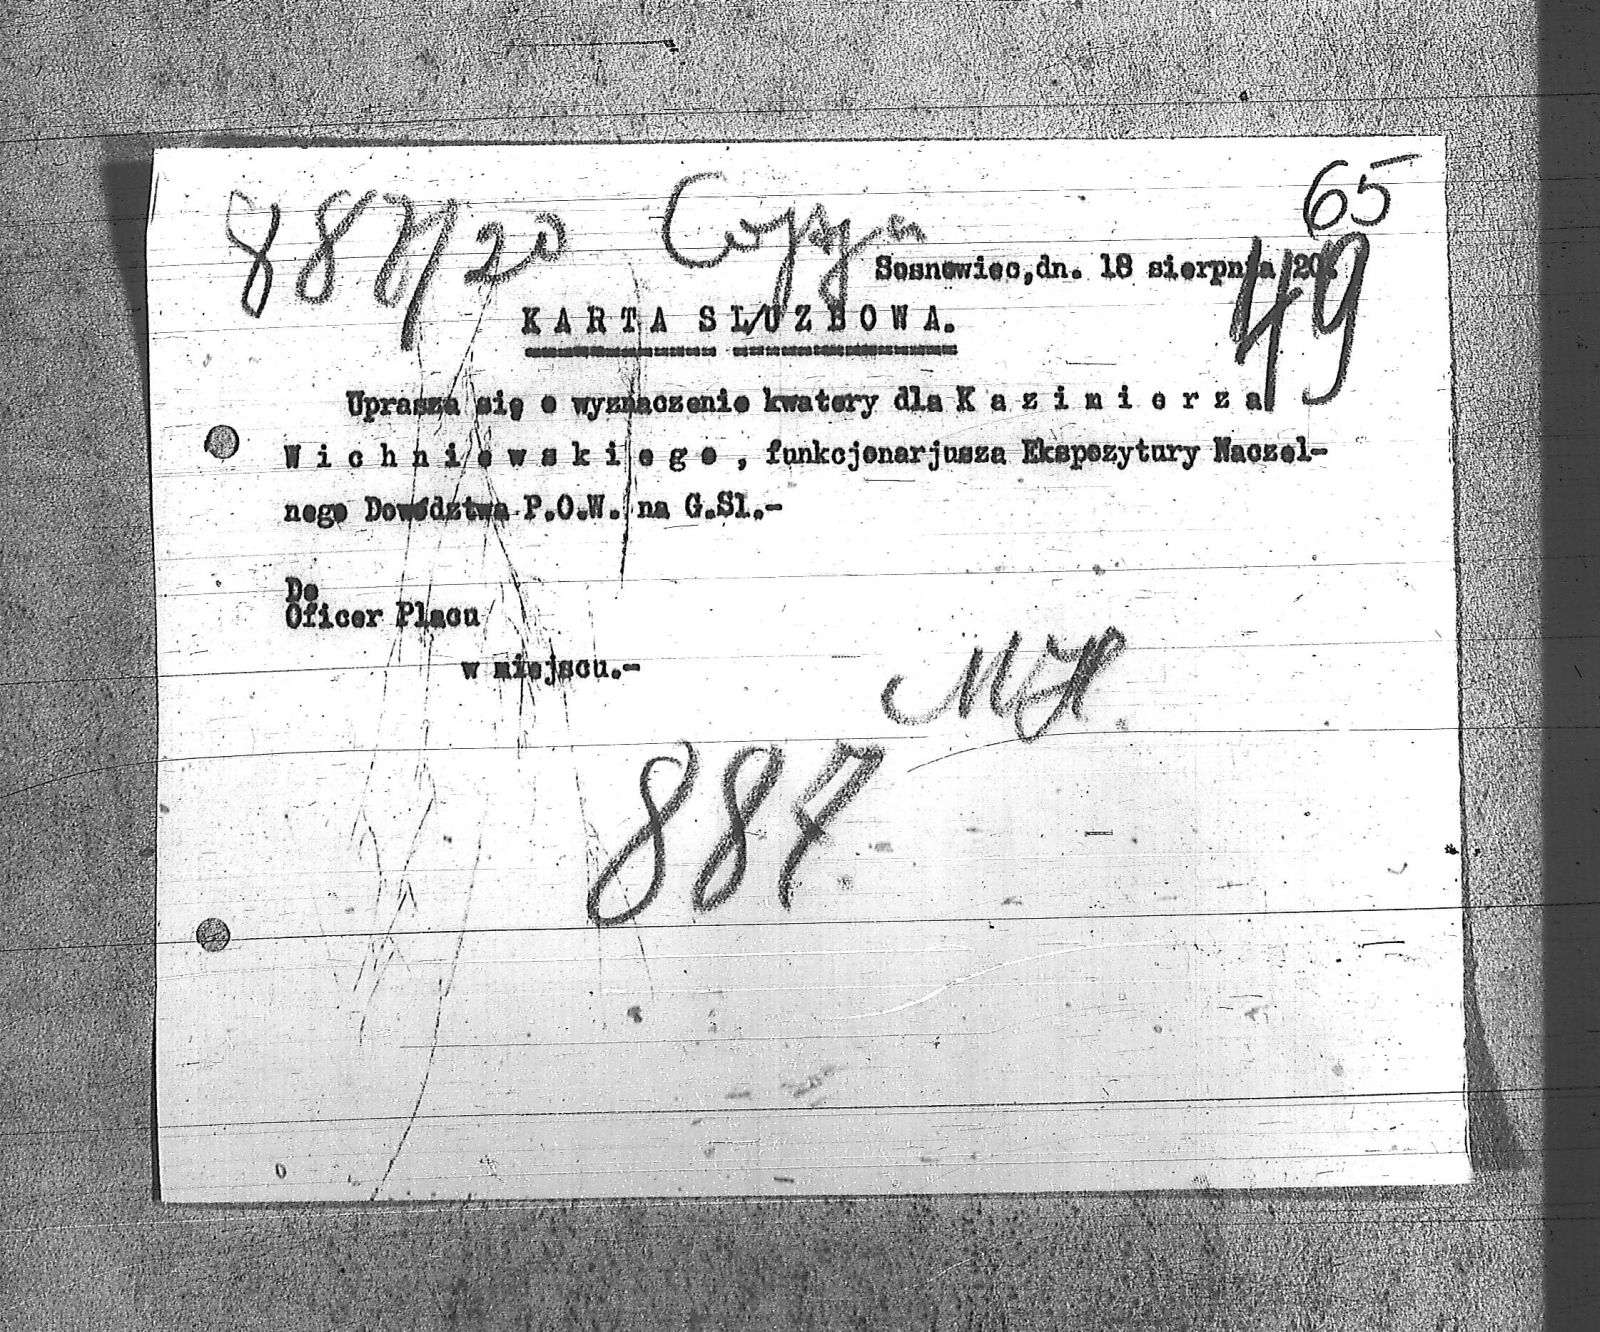 65
887/20
Sosnowiec,dn. 18 sierpnia 20.
49
KARTA SŁUZBOWA.
Uprasza się o wyznaczenie kwatery dla Kazimierza
Wichniewskiego, funkcjonarjusza Ekspozytury Naczel-
nego Dowództwa P.O.W. na G.Sl.-
Do
Oficer Placu
w miejscu.-
887